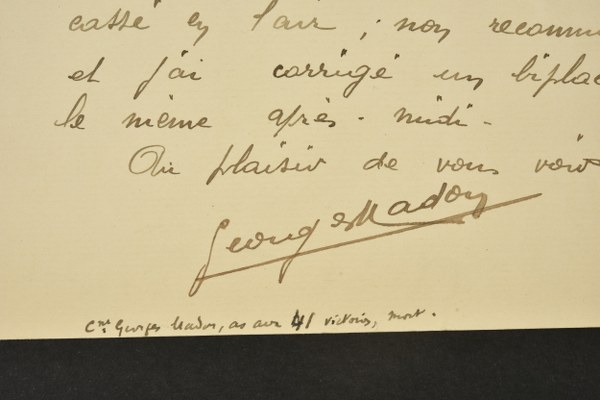 cassé en l'air ; non recomm
et j'ai corrigé un biplac
le même après-midi -
Au plaisir de vous voir
Georges Madon
Cne Georges Madon, as aux 41 victoires, mort.